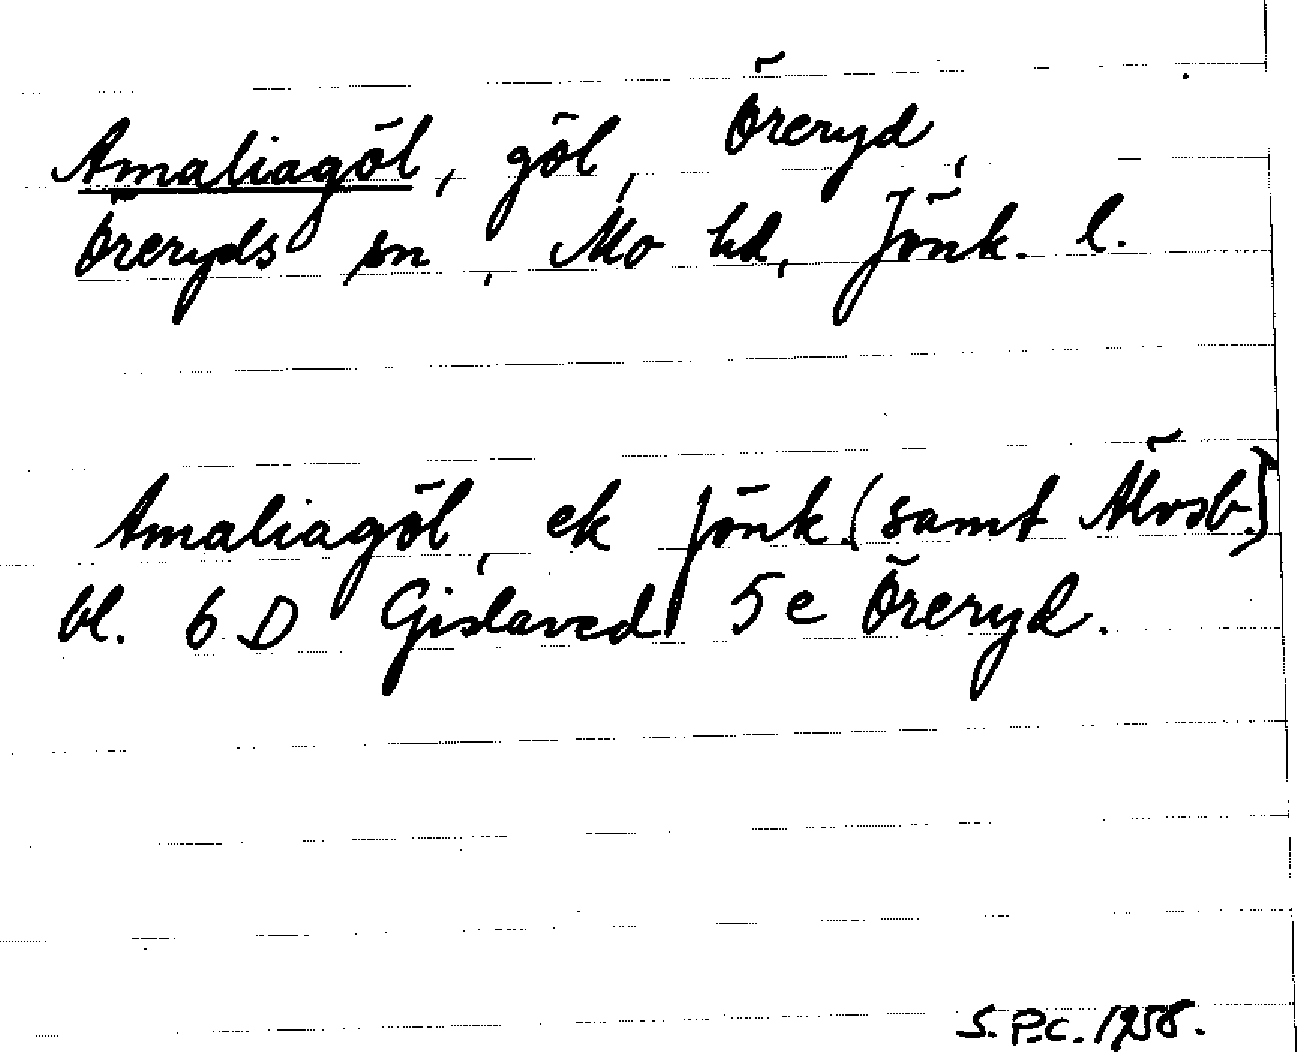 Amaliagöl, göl, Öreryd,
Öreryds sn, Mo hd, Jönk. l.
Amaliagöl, ek Jönk. (samt Älvsb.)
bl. 6 D Gislaved 5 e Öreryd.
S.P.C. 1958.